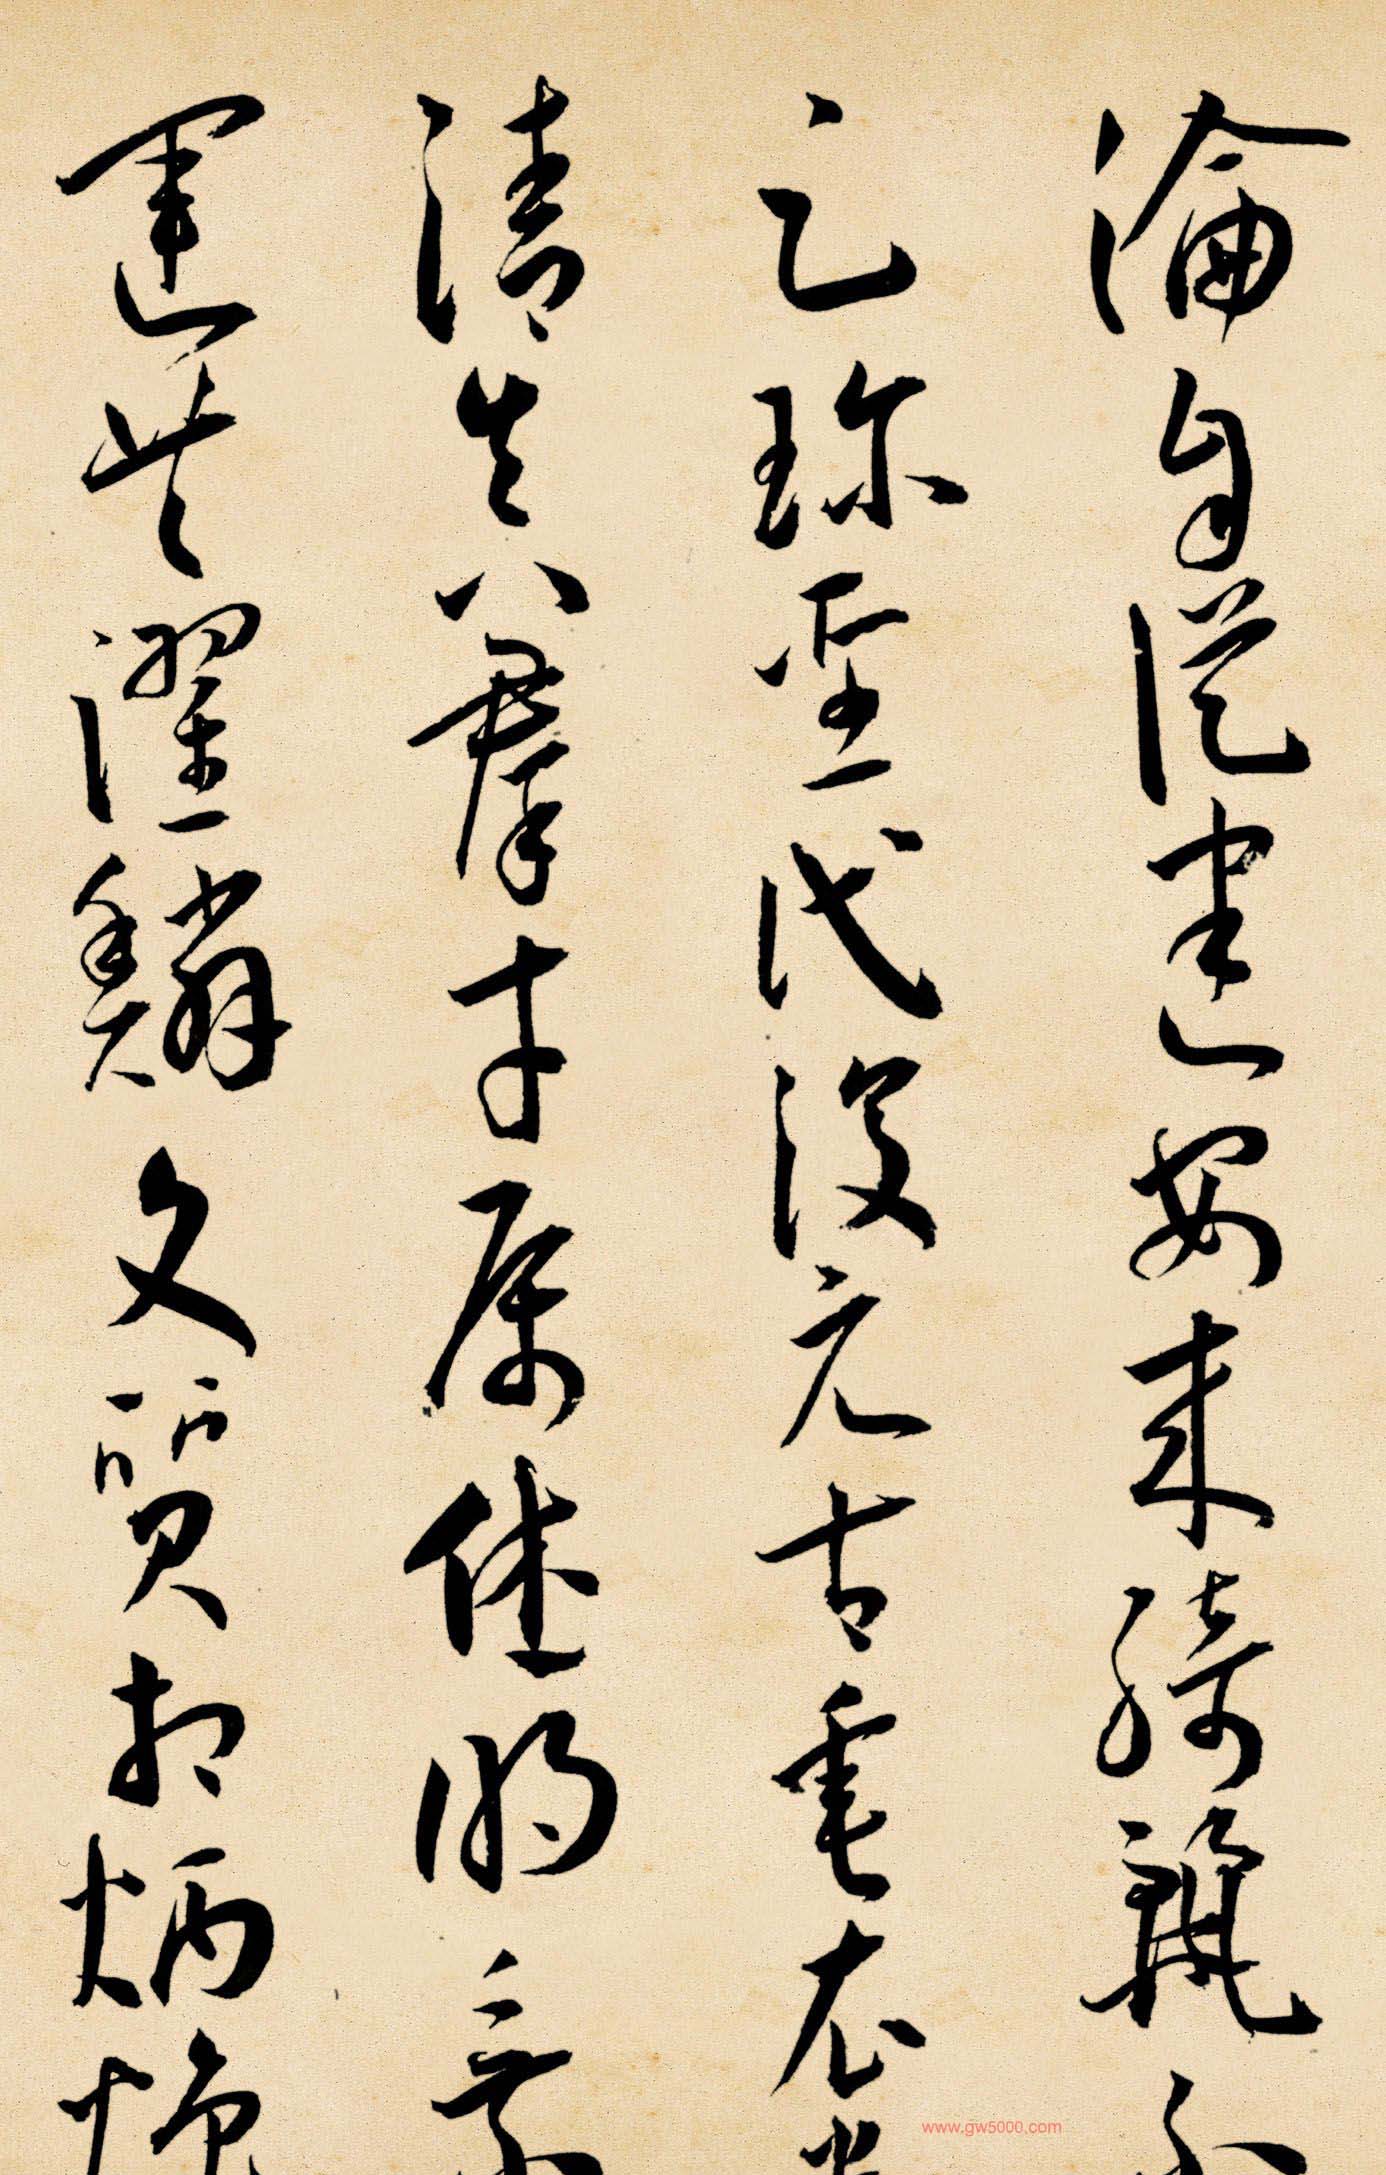 淪自從建安来綺麗不
足珍聖代復元古垂衣貴
清真八羣才屬休明乘
運共躍鱗文質相炳煥
www.gw5000.com